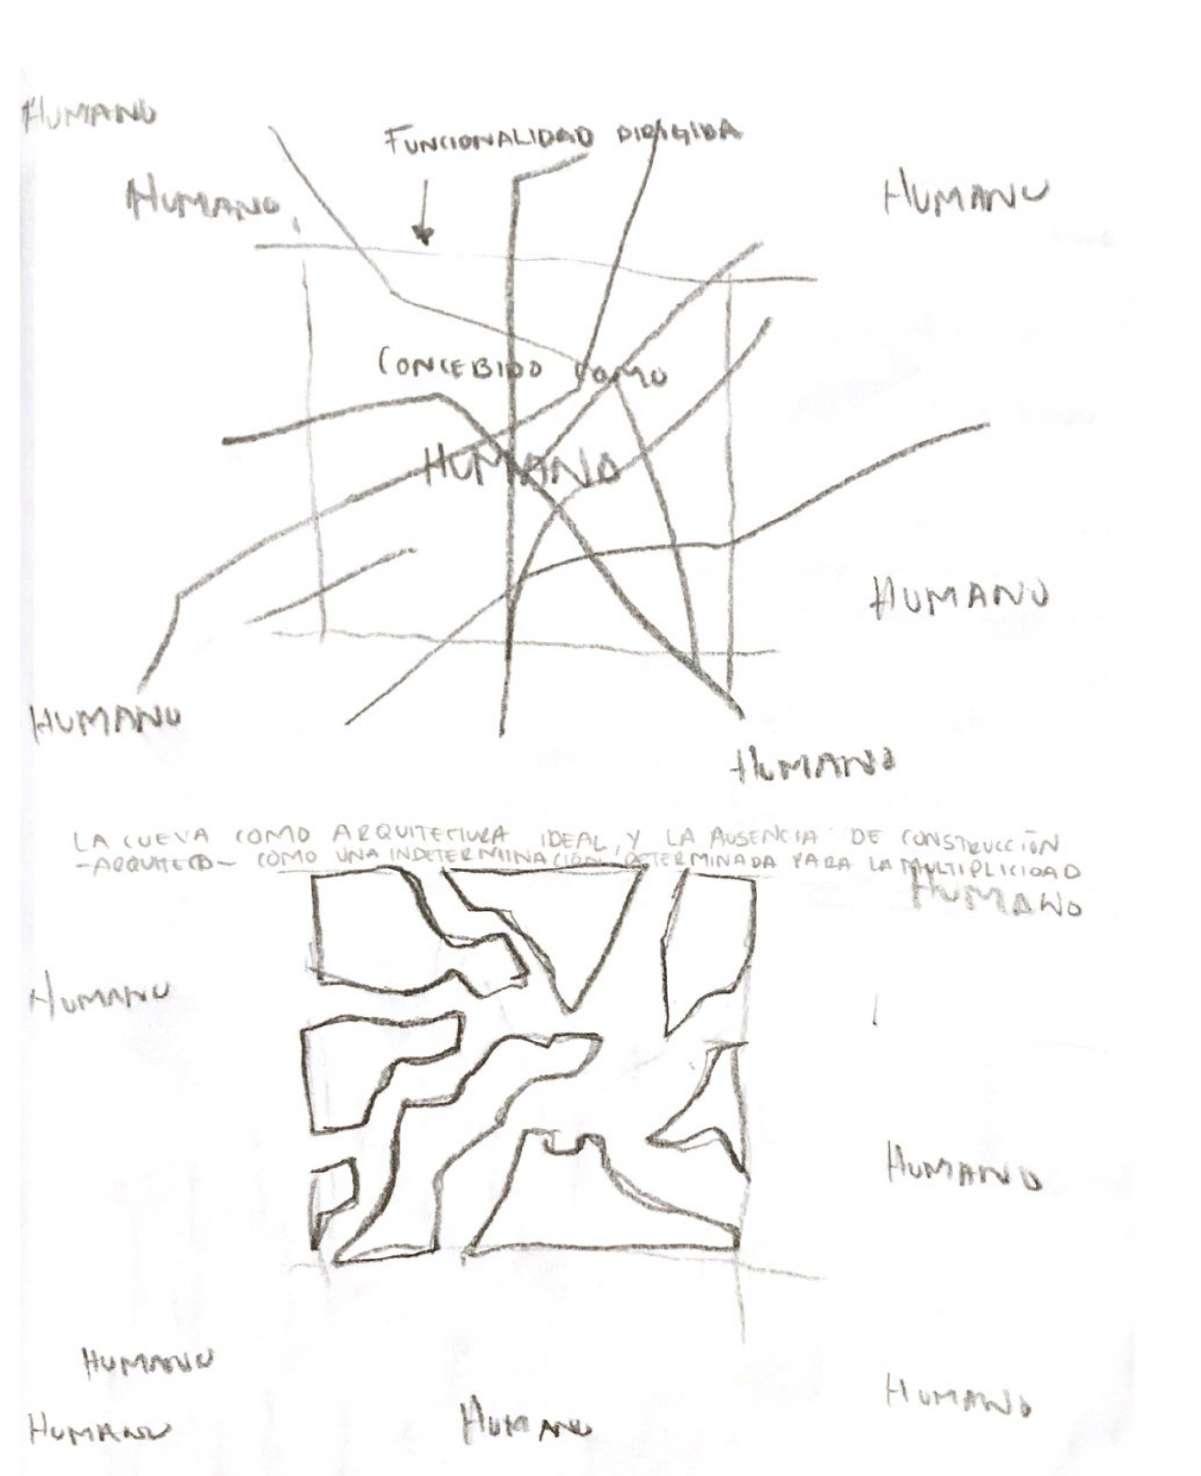 HUMANO
FUNCIONALIDAD DIRIGIDA
HUMANO
HUMANO
CONCEBIDO COMO
HUMANO
HUMANO
HUMANO
HUMANO
LA CUEVA COMO ARQUITECTURA IDEAL, Y LA AUSENCIA DE CONSTRUCCIÓN
-ARQUITECTO- COMO UNA INDETERMINACIÓN DETERMINADA PARA LA MULTIPLICIDAD
HUMANO
HUMANO
HUMANO
HUMANO
HUMANO
HUMANO
HUMANO